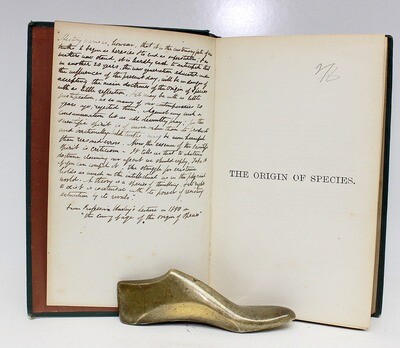 History warns us, however, that it is the customary fate of new
truths to begin as heresies & to end as superstitions; & as
matters now stand, it is hardly rash to anticipate that
in another 20 years, the new generation educated under
the influences of the present day, will be in danger of
accepting the main doctrines of the Origin of Species
with as little reflection, & it may be with as little
justification, as so many of our contemporaries 20
years ago, rejected them. Against any such a
consummation let us all devoutly pray; for the
scientific spirit is of more value than its products
and irrationally held truths may be more harmful
than reasoned errors. Now the essence of the scientific
spirit is criticism. It tells us that
doctrine claiming our assent we should reply, Take it
if you can compel it. The struggle for existence
holds as much in the intellectual as in the physical
world. A theory is a species of thinking, and its right
to exist is coextensive with its power of resisting
extinction by its rivals."
from Professor Huxley's Lecture in 1880 on
"the coming of age of the Origin of Species"
THE ORIGIN OF SPECIES.